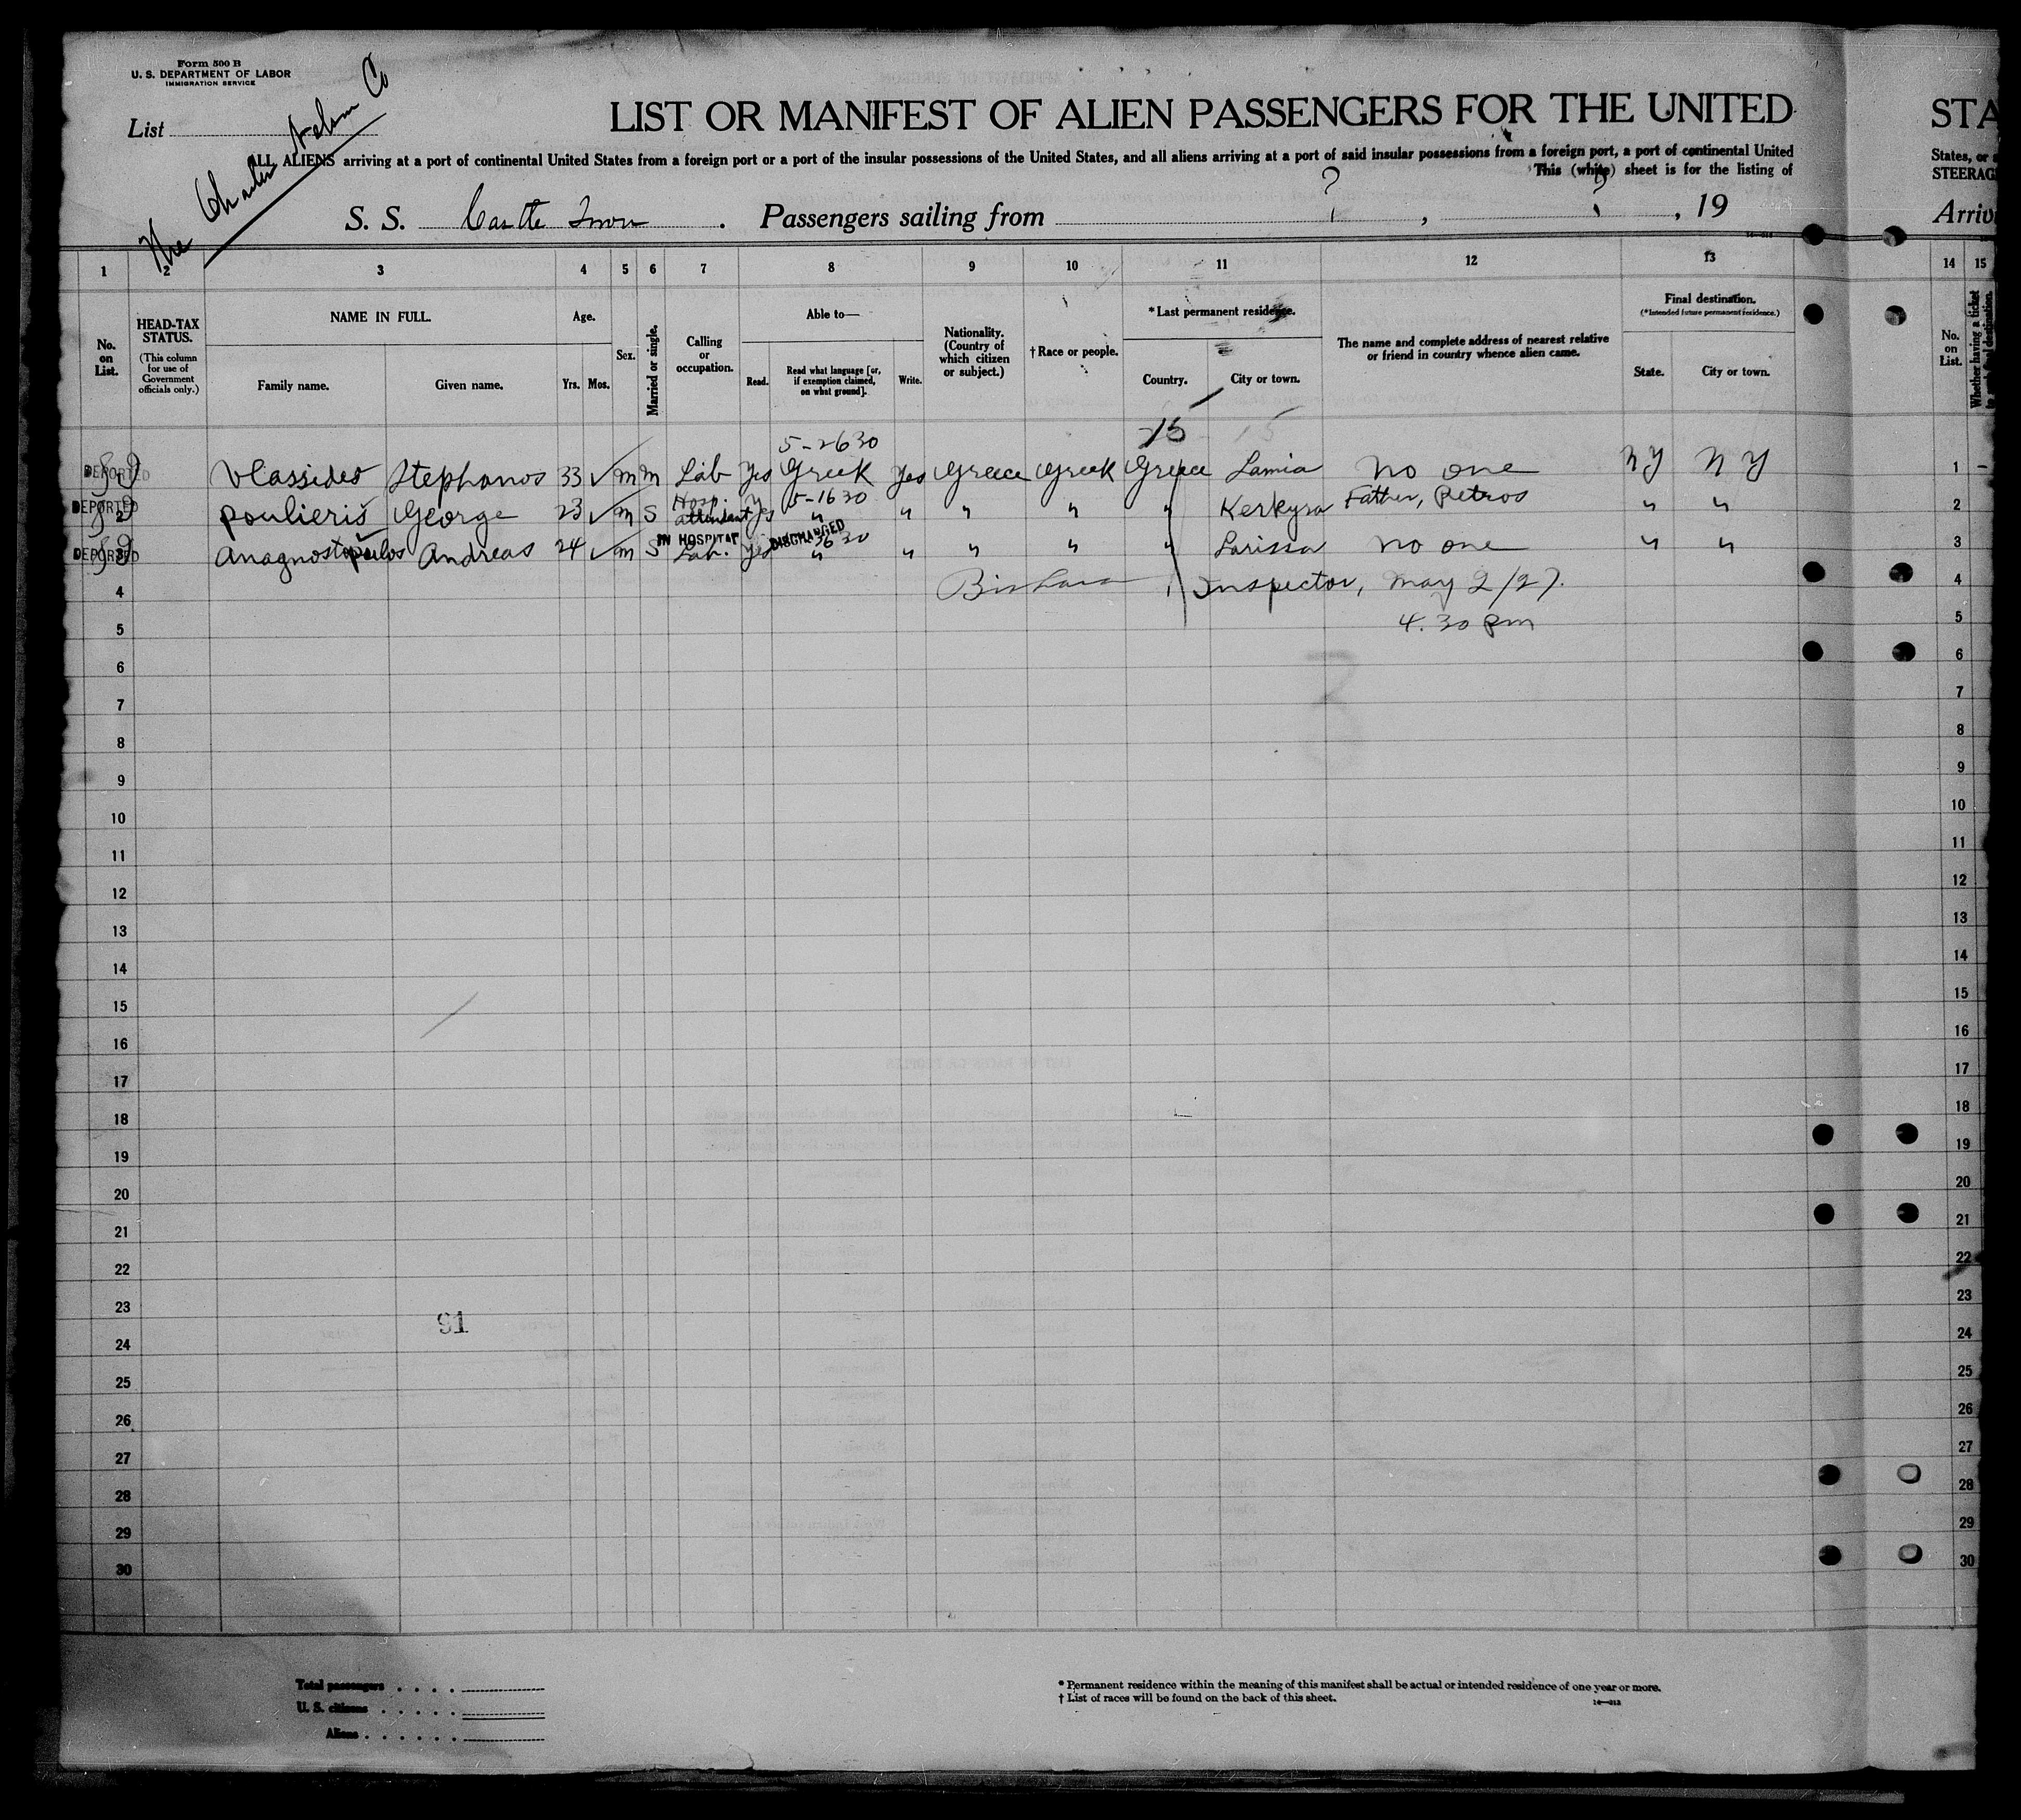 Form 500 B
U. S. DEPARTMENT OF LABOR
IMMIGRATION SERVICE
List
The Charles Nelson Co
LIST OR MANIFEST OF ALIEN PASSENGERS FOR THE UNITED
STA
ALL ALIENS arriving at a port of continental United States from a foreign port or a port of the insular possessions of the United States, and all aliens arriving at a port of said insular possessions from a foreign port, a port of continental United
States, or
This (white) sheet is for the listing of
STEERAG
S. S. Castle Town . Passengers sailing from ? , ? , 19
Arriv
1 2 3 4 5 6 7 8 9 10 11 12 13 14 15
No. on List.
HEAD-TAX STATUS.
(This column for use of Government officials only.)
NAME IN FULL.
Family name. Given name.
Age.
Yrs. Mos.
Sex.
Married or single.
Calling or occupation.
Able to—
Read. Read what language [or, if exemption claimed, on what ground]. Write.
Nationality. (Country of which citizen or subject.)
† Race or people.
* Last permanent residence.
Country. City or town.
The name and complete address of nearest relative or friend in country whence alien came.
Final destination.
(* Intended future permanent residence.)
State. City or town.
No. on List.
Whether having a ticket
15 15
5-2630
DEPORTED Vlassides Stephanos 33 ✓ m m Lab Yes Greek Yes Greece Greek Greece Lamia No one N Y N Y 1 –
5-1630
DEPORTED 2 Poulieris George 23 ✓ m S Hosp. attendant Yes " " " " " Kerkyra Father, Petros " " 2
IN HOSPITAL DISCHARGED
DEPORTED 3 Anagnostopoulos Andreas 24 ✓ m S Lab. Yes " " " " " Larissa No one " " 3
4 Inspector, May 2/27. 4
5 4.30 pm 5
6 6
7 7
8 8
9 9
10 10
11 11
12 12
13 13
14 14
15 15
16 16
17 17
18 18
19 19
20 20
21 21
22 22
23 23
91
24 24
25 25
26 26
27 27
28 28
29 29
30 30
Total passengers
U. S. citizens
Aliens
* Permanent residence within the meaning of this manifest shall be actual or intended residence of one year or more.
† List of races will be found on the back of this sheet.